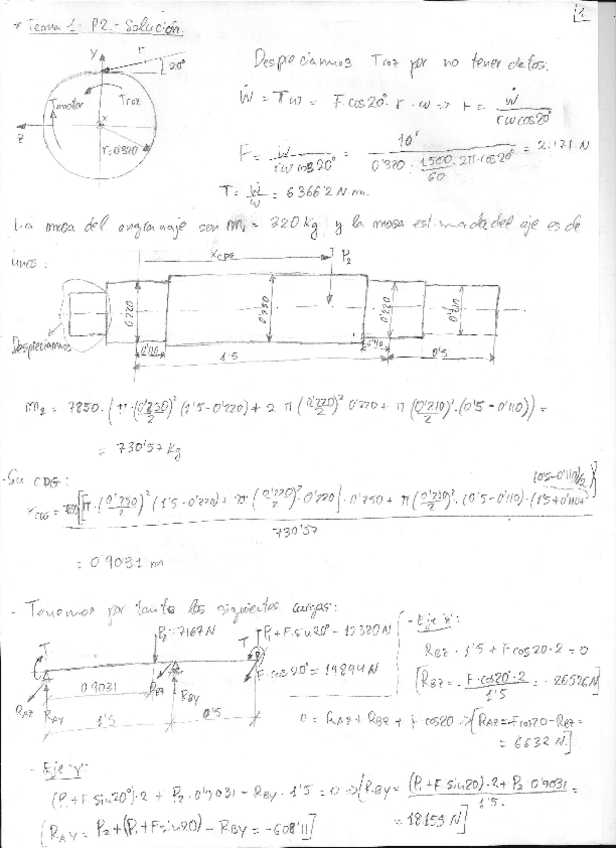 * Tema 1: P2.- Solución:
Y
F
20°
Tmotor
Troz
Z
x
r=0'320
Despreciamos Troz por no tener datos.
Ẇ = Tω = F·cos20°·r·ω => F = Ẇ / rωcos20°
F = Ẇ / rωcos20° = 10⁶ / 0'320·1500/60·2π·cos20° = 21171 N
T = Ẇ/ω = 6366'2 N·m.
La masa del engranaje son m₁ = 320 Kg y la masa estimada del eje es de
unos:
X CDG
P₂
Despreciamos
0'220
0'250
0'220
0'210
0'110
0'110
1'5
0'5
m₂ = 7850·(π·(0'250/2)²(1'5-0'220) + 2π(0'220/2)²0'220 + π(0'210/2)²·(0'5-0'110)) =
= 730'57 Kg
- Su CDG:
(0'5-0'110)/2
X CDG = 7850[[π·(0'250/2)²(1'5-0'220) + 2π(0'220/2)²·0'220]·0'750 + π(0'210/2)²·(0'5-0'110)·(1'5+0'110+
730'57
= 0'9031 m
- Tenemos por tanto las siguientes cargas:
P₂=7167N
P₁+F·sin20° = 12380N
T
T
F·cos20° = 19894N
0'9031
RAZ
RAY
RBZ
RBY
1'5
0'5
- Eje "z":
RBZ·1'5 + F·cos20·2 = 0
[RBZ = -F·cos20°·2 / 1'5 = -26526N]
0 = RAZ + RBZ + F cos20 => [RAZ = -Fcos20 - RBZ =
= 6632 N]
- Eje "y":
(P₁+F sin20°)·2 + P₂·0'9031 - RBY·1'5 = 0 => [RBY = (P₁+F sin20)·2+P₂·0'9031 / 1'5 =
= 18155N]
[RAY = P₂+(P₁+F sin20) - RBY = -608'11]